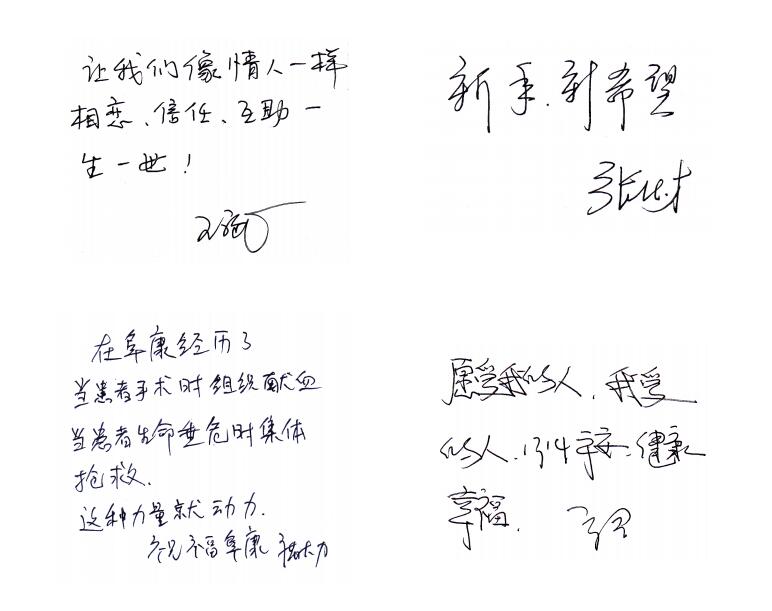 让我们像情人一样
相恋、信任、互助一
生一世!
新手.新希望
在阜康经历了
当患者手术时组织献血
当患者生命垂危时集体
抢救.
这种力量就动力.
祝福阜康
愿爱我的人、我爱
的人.1314平安.健康
幸福.